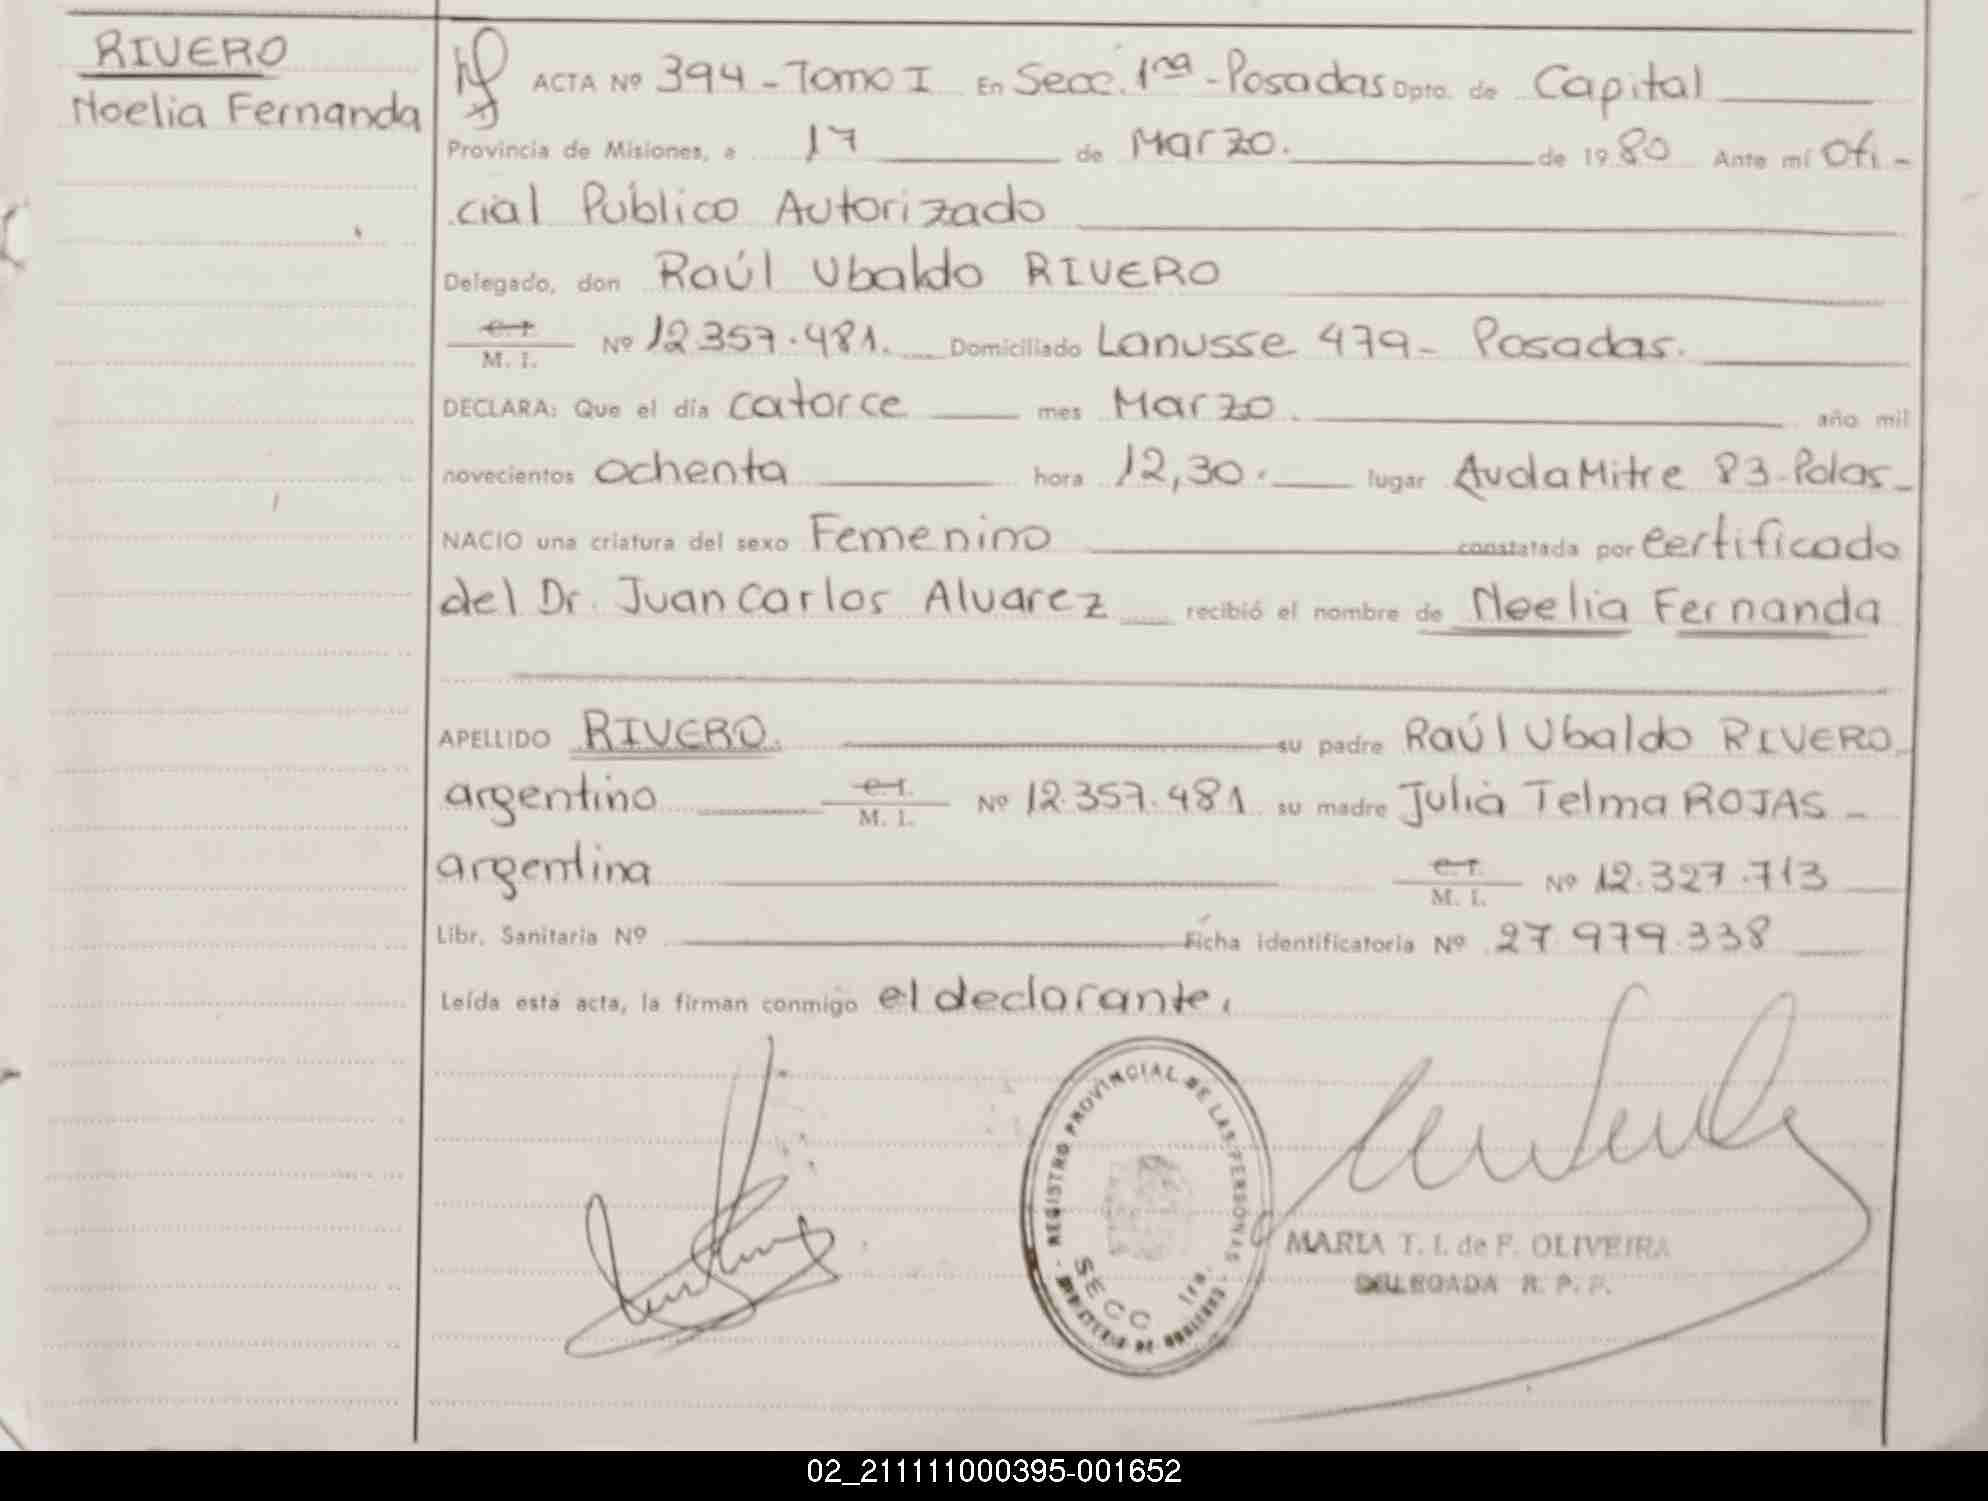 RIVERO
Noelia Fernanda
ACTA Nº 394 - Tomo I En Secc. 1ra - Posadas Dpto. de Capital
Provincia de Misiones, a 17 de Marzo. de 1980 Ante mí Ofi-
cial Público Autorizado
Delegado, don Raúl Ubaldo RIVERO
C. I.
M. I. Nº 12.357.481. Domiciliado Lanusse 479 - Posadas.
DECLARA: Que el día catorce mes Marzo. año mil
novecientos ochenta hora 12,30. lugar Avda Mitre 83-Pdas-
NACIO una criatura del sexo Femenino constatada por certificado
del Dr. Juan Carlos Alvarez recibió el nombre de Noelia Fernanda
APELLIDO RIVERO. su padre Raúl Ubaldo RIVERO
argentino C. I.
M. I. Nº 12.357.481 su madre Julia Telma ROJAS -
argentina C. I.
M. I. Nº 12.327.713
Libr. Sanitaria Nº Ficha identificatoria Nº 27.979.338
Leída esta acta, la firman conmigo el declarante.
REGISTRO PROVINCIAL DE LAS PERSONAS
SECC 1ra.
MINISTERIO DE GOBIERNO
MARIA T. I. de F. OLIVEIRA
DELEGADA R. P. P.
02_211111000395-001652